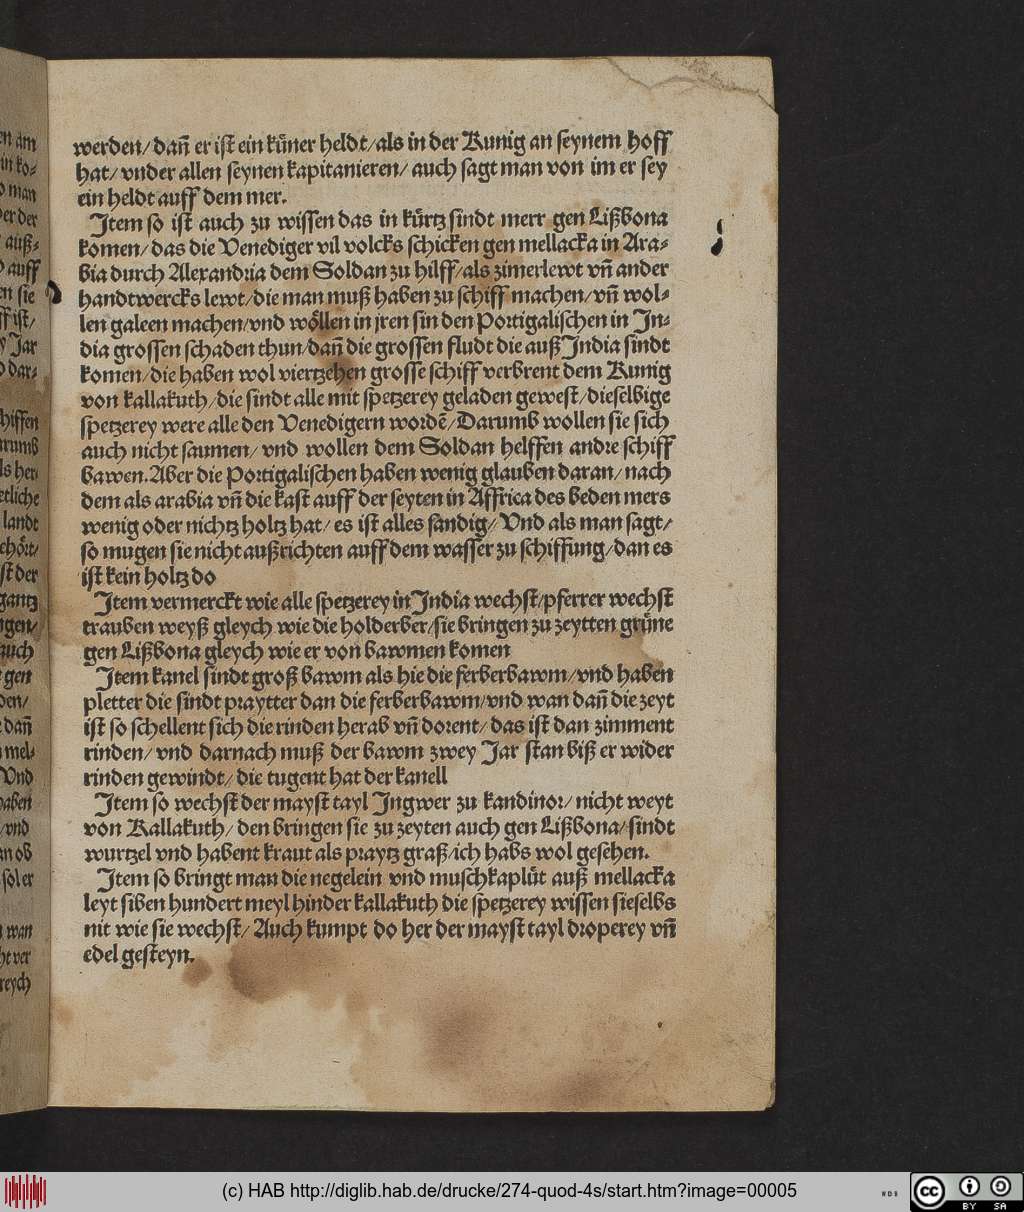 werden/dañ er ist ein küner heldt/als in der Kunig an seynem hoff
hat/ vnder allen seynen kapitanieren/ auch sagt man von im er sey
ein heldt auff dem mer.
Item so ist auch zu wissen das in kürtz sindt merr gen Lißbona
komen/ das die Venediger vil volcks schicken gen mellacka in Ara-
bia durch Alexandria dem Soldan zu hilff/als zimerlewt vñ ander
handtwercks lewt/die man muß haben zu schiff machen/vñ wol-
len galeen machen/vnd wöllen in jren sin den Portigalischen in In-
dia grossen schaden thun/dañ die grossen fludt die auß India sindt
komen/die haben wol viertzehen grosse schiff verbrent dem Kunig
von kallakuth/die sindt alle mit spetzerey geladen gewest/dieselbige
spetzerey were alle den Venedigern wordē/Darumb wollen sie sich
auch nicht saumen/ vnd wollen dem Soldan helffen andre schiff
bawen. Aber die Portigalischen haben wenig glauben daran/ nach
dem als arabia vñ die kast auff der seyten in Affrica des beden mers
wenig oder nichtz holtz hat/ es ist alles sandig/ Vnd als man sagt/
so mugen sie nicht außrichten auff dem wasser zu schiffung/dan es
ist kein holtz do
Item vermerckt wie alle spetzerey in India wechst/pferrer wechst
trauben weyß gleych wie die holderber/sie bringen zu zeytten grüne
gen Lißbona gleych wie er von bawmen komen
Item kanel sindt groß bawm als hie die ferberbawm/vnd haben
pletter die sindt praytter dan die ferberbawm/vnd wan dañ die zeyt
ist so schellent sich die rinden herab vñ dorent/ das ist dan zimment
rinden/ vnd darnach muß der bawm zwey Jar stan biß er wider
rinden gewindt/ die tugent hat der kanell
Item so wechst der mayst tayl Ingwer zu kandinor/ nicht weyt
von Kallakuth/ den bringen sie zu zeyten auch gen Lißbona/sindt
wurtzel vnd habent kraut als praytz graß/ich habs wol gesehen.
Item so bringt man die negelein vnd muschkaplüt auß mellacka
leyt siben hundert meyl hinder kallakuth die spetzerey wissen sieselbs
nit wie sie wechst/ Auch kumpt do her der mayst tayl droperey vñ
edel gesteyn.
(c) HAB http://diglib.hab.de/drucke/274-quod-4s/start.htm?image=00005
cc BY SA